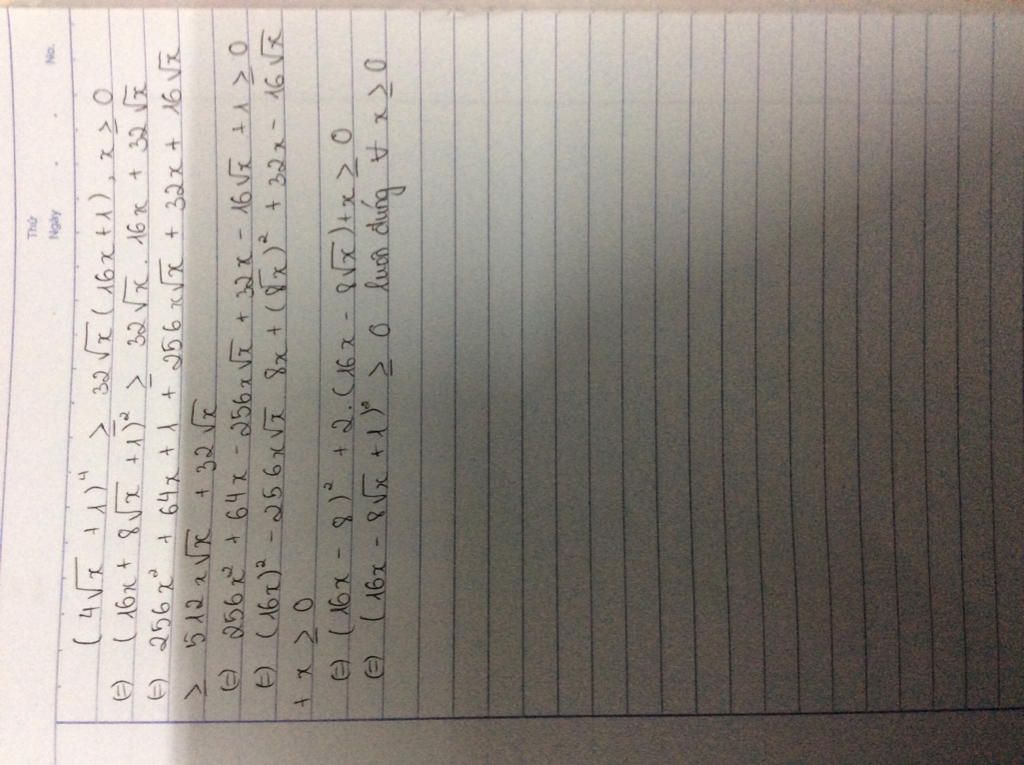 Thứ
Ngày . . No.
(4√x + 1)⁴ > 32√x (16x + 1), x ≥ 0
(=) (16x + 8√x + 1)² ≥ 32√x . 16x + 32√x
(=) 256x² + 64x + 1 + 256x√x + 32x + 16√x
≥ 512x√x + 32√x
(=) 256x² + 64x - 256x√x + 32x - 16√x + 1 ≥ 0
(=) (16x)² - 256x√x 8x + (8√x)² + 32x - 16√x
+ x ≥ 0
(=) (16x - 8)² + 2.(16x - 8√x) + x ≥ 0
(=) (16x - 8√x + 1)² ≥ 0 luôn đúng ∀ x ≥ 0